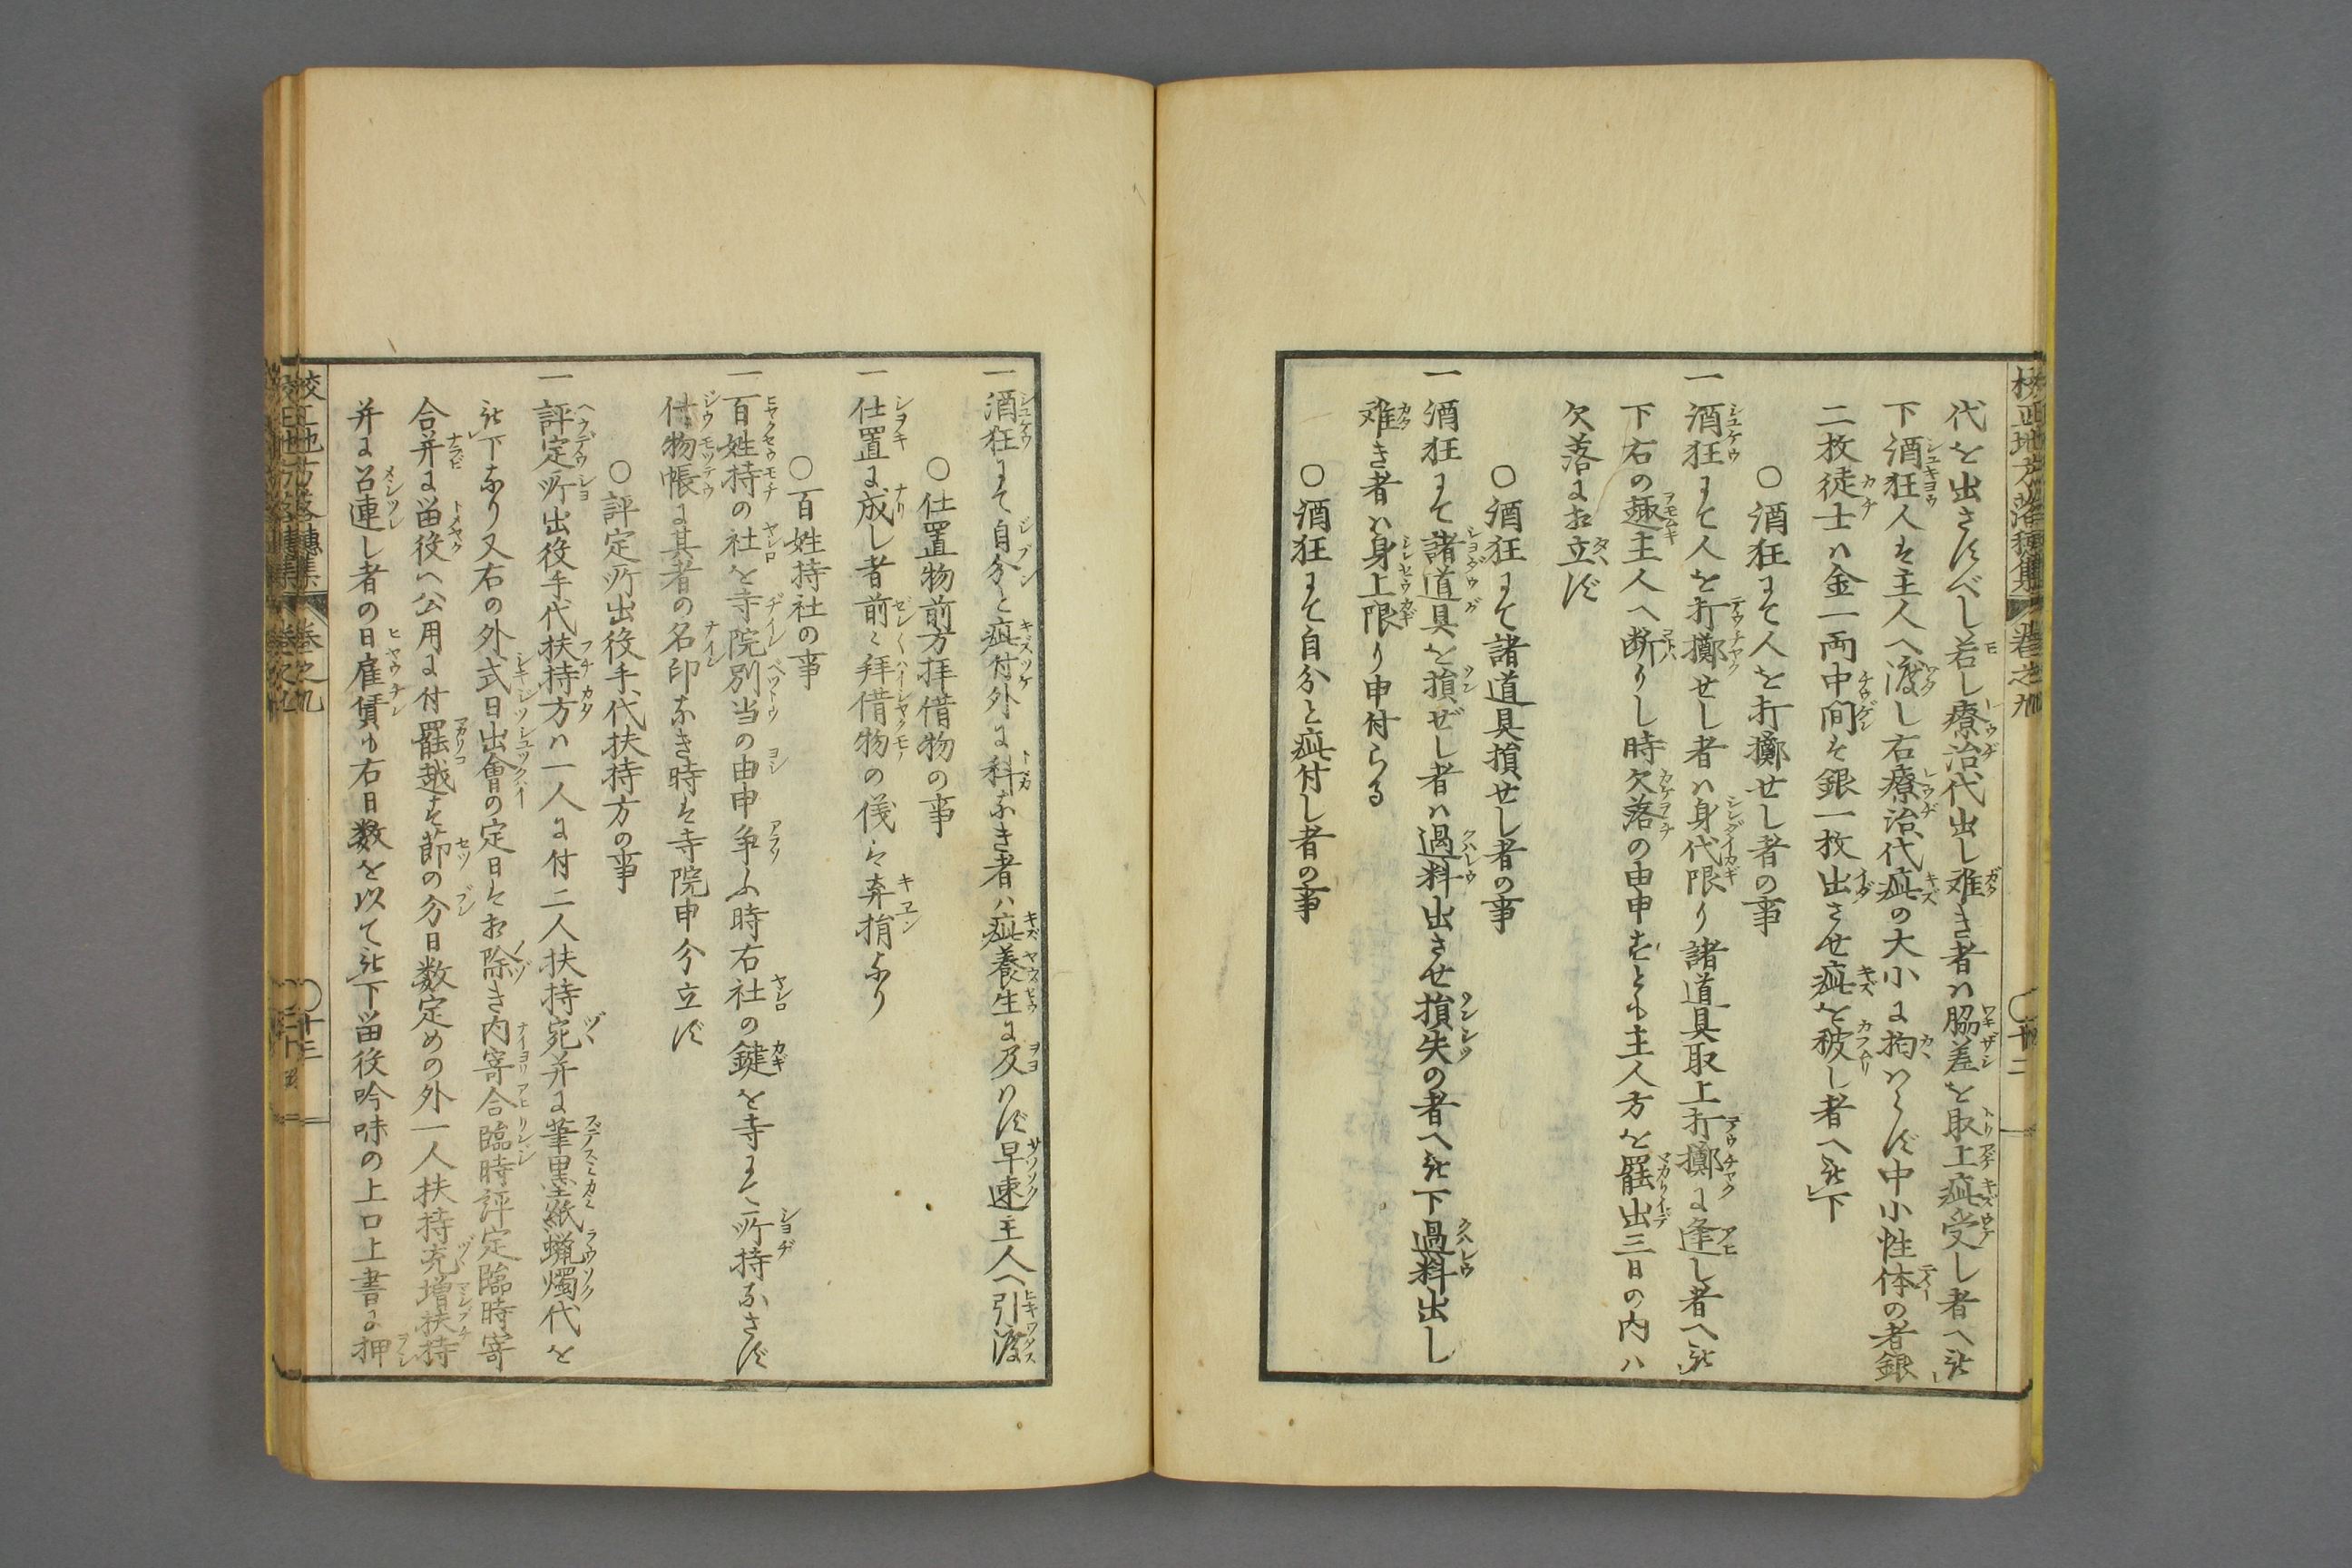 校正地方落穂集 巻之九 〇十二
代を出さすべし若し療治代出し難き者ハ脇差を取上疵受し者へ被
下酒狂人を主人へ渡し右療治代疵の大小に拘ハらず中小性体の者銀
二枚徒士ハ金一両中間ハ銀一枚出させ疵を被し者へ被下
〇酒狂にて人を打擲せし者の事
一酒狂にて人を打擲せし者ハ身代限り諸道具取上打擲に逢し者へ被
下右の趣主人へ断りし時欠落の由申すとも主人方を罷出三日の内ハ
欠落にお立ず
〇酒狂にて諸道具損せし者の事
一酒狂にて諸道具を損ぜし者ハ過料出させ損失の者へ被下過料出し
難き者ハ身上限り申付らる
〇酒狂にて自分と疵付し者の事
一酒狂にて自分と疵付外に科なき者ハ疵養生に及ハず早速主人へ引渡
〇仕置物前方拝借物の事
一仕置に成し者前〻拝借物の儀は弃捐なり
〇百姓持社の事
一百姓持の社を寺院別当の由申争ふ時右社の鍵を寺にて所持なさず
什物帳に其者の名印なき時は寺院申分立ず
〇評定所出役手代扶持方の事
一評定所出役手代扶持方ハ一人に付二人扶持宛并に筆墨紙蝋燭代を
被下なり又右の外式日出會の定日はお除き内寄合臨時評定臨時寄
合并に畄役へ公用に付罷越す節の分日数定めの外一人扶持充増扶持
并に召連し者の日雇賃も右日数を以て被下畄役吟味の上口上書に押
校正地方落穂集 巻之九 〇十三